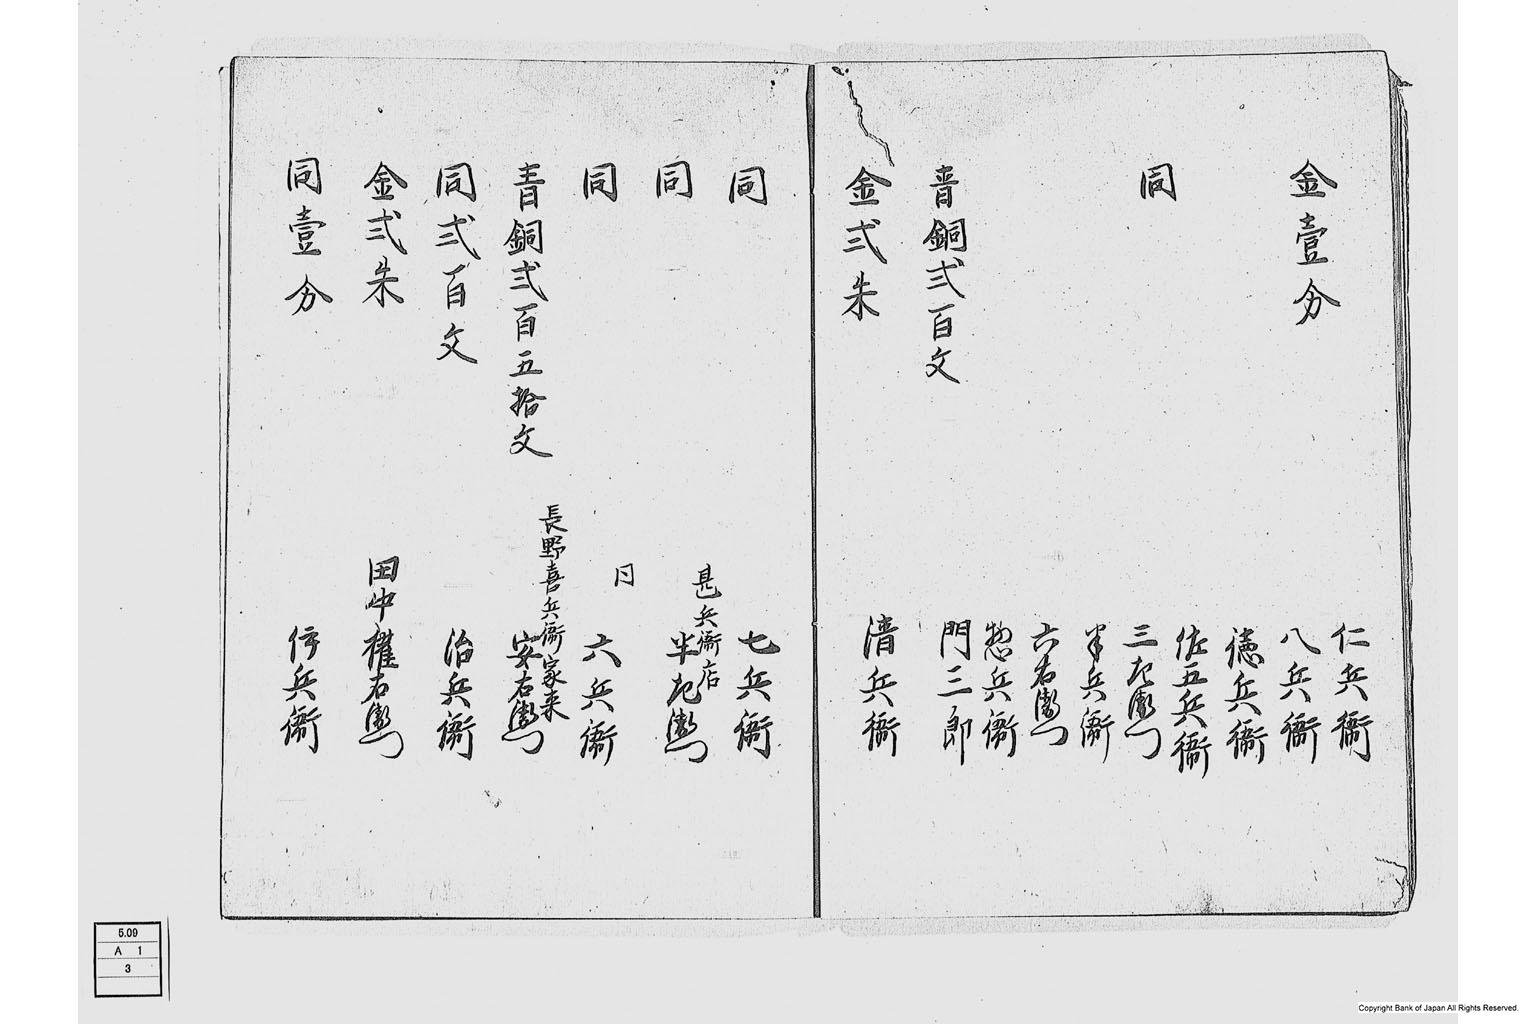 金壹分
仁兵衞
八兵衞
徳兵衞
同
佐五兵衞
三右衞門
半兵衞
六右衞門
惣兵衞
青銅弐百文
門三郎
金弐朱
清兵衞
同
七兵衞
同
甚兵衞店
半右衞門
同
同
六兵衞
青銅弐百五拾文
長野喜兵衞家来
安右衞門
同弐百文
治兵衞
金弐朱
田中権右衞門
同壹分
伊兵衞
5.09
A 1
3
Copyright Bank of Japan All Rights Reserved.